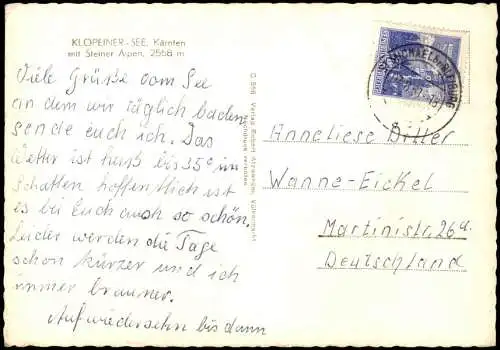 KLOPEINER-SEE, Kärnten
mit Steiner Alpen, 2558 m
Viele Grüße vom See
an dem wir täglich baden
sende euch ich. Das
Wetter ist heiß bis 35° im
Schatten hoffentlich ist
es bei Euch auch so schön.
Leider werden die Tage
schon kürzer und ich
immer brauner.
Auf wiedersehn bis dann
Anneliese Ditter
Wanne-Eickel
Martinistr. 26a.
Deutschland